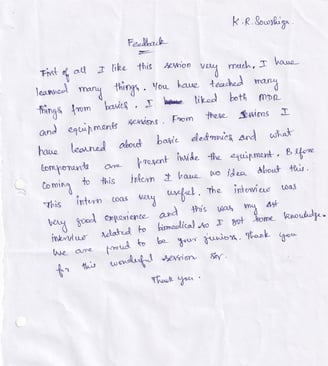 K.R. Sowshiga.
Feedback
First of all I like this session very much. I have
learned many things. You have teached many
things from basics. I liked both MDR
and equipments sessions. From these sessions I
have learned about basic electronics and what
components are present inside the equipment. Before
coming to this Intern I have no idea about this.
This intern was very useful. The interview was
very good experience and this was my 1st
interview related to biomedical so I got some knowledge.
We are proud to be your juniors. Thank you
for this wonderful session sir.
Thank you.